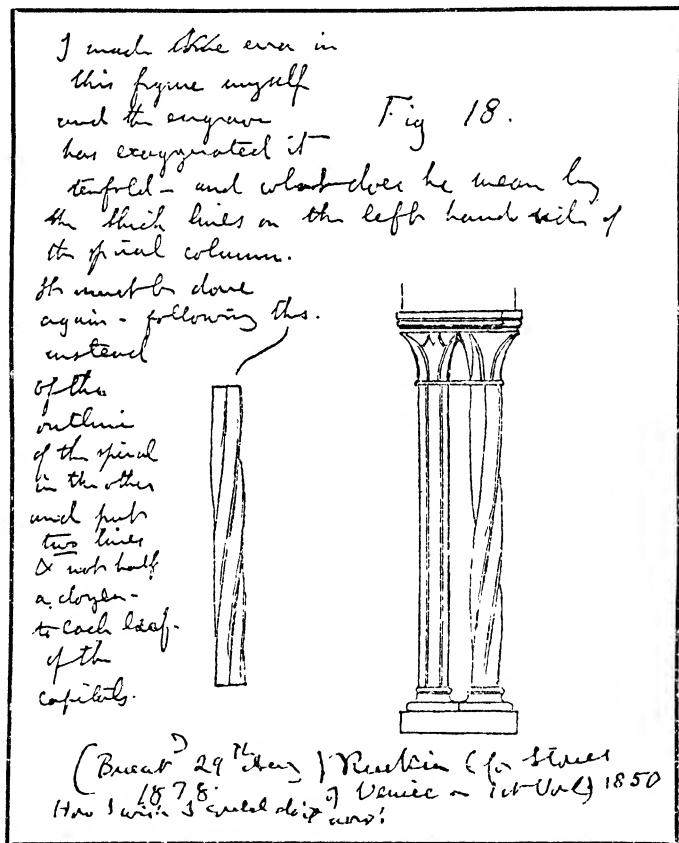 I made the error in
this figure myself
and the engraver
has exaggerated it
Fig 18.
tenfold - and what does he mean by
the thick lines on the left hand side of
the spiral column.
It must be done
again - following this.
instead
of the
outline
of the spiral
in the other
and put
two lines
& not half
a dozen -
to each leaf.
of the
capitals.
( 29th ) Ruskin (for Stones
1878. of Venice 1st Vol) 1850
How I wish I could now!